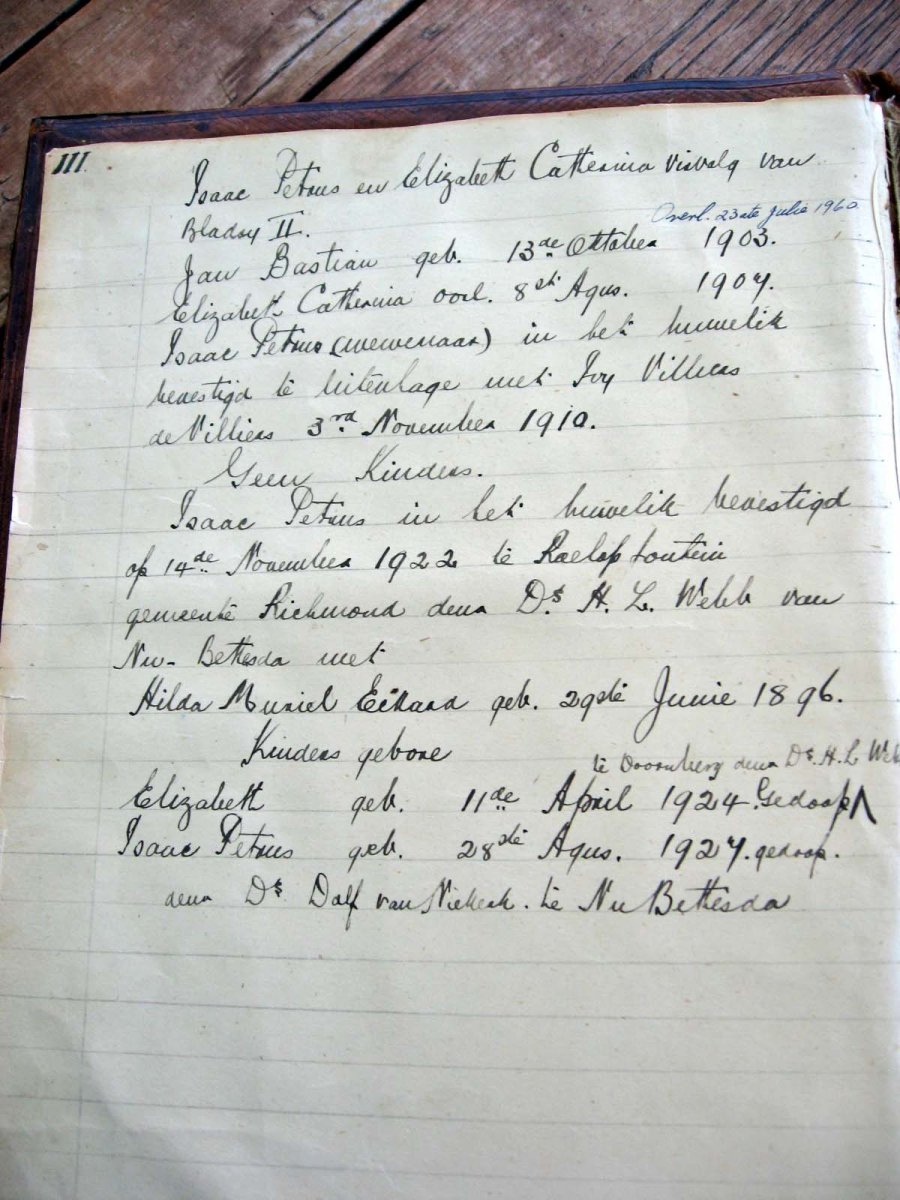 III.
Isaac Petrus en Elizabeth Catherina vervolg van
Bladsy II.
Overl. 23ste Julie 1960
Jan Bastian geb. 13de Oktober 1903.
Elizabeth Catherina oorl. 8ste Agus. 1907.
Isaac Petrus (wewenaar) in het huwelik
bevestigd te Uitenhage met Ivy Villiers
de Villiers 3rd November 1910.
Geen Kinders.
Isaac Petrus in het huwelik bevestigd
op 14de November 1922 te Roelopfontein
gemeente Richmond deur Ds H. L. Webb van
Nu-Bethesda met
Hilda Muriel Eckard geb. 29ste Junie 1896.
Kinders gebore
te Doornberg deur Ds. H. L. Webb
Elizabeth geb. 11de April 1924 Gedoop
Isaac Petrus geb. 28ste Agus. 1927. gedoop.
deur Ds Dolf van Niekerk. te Nu Bethesda